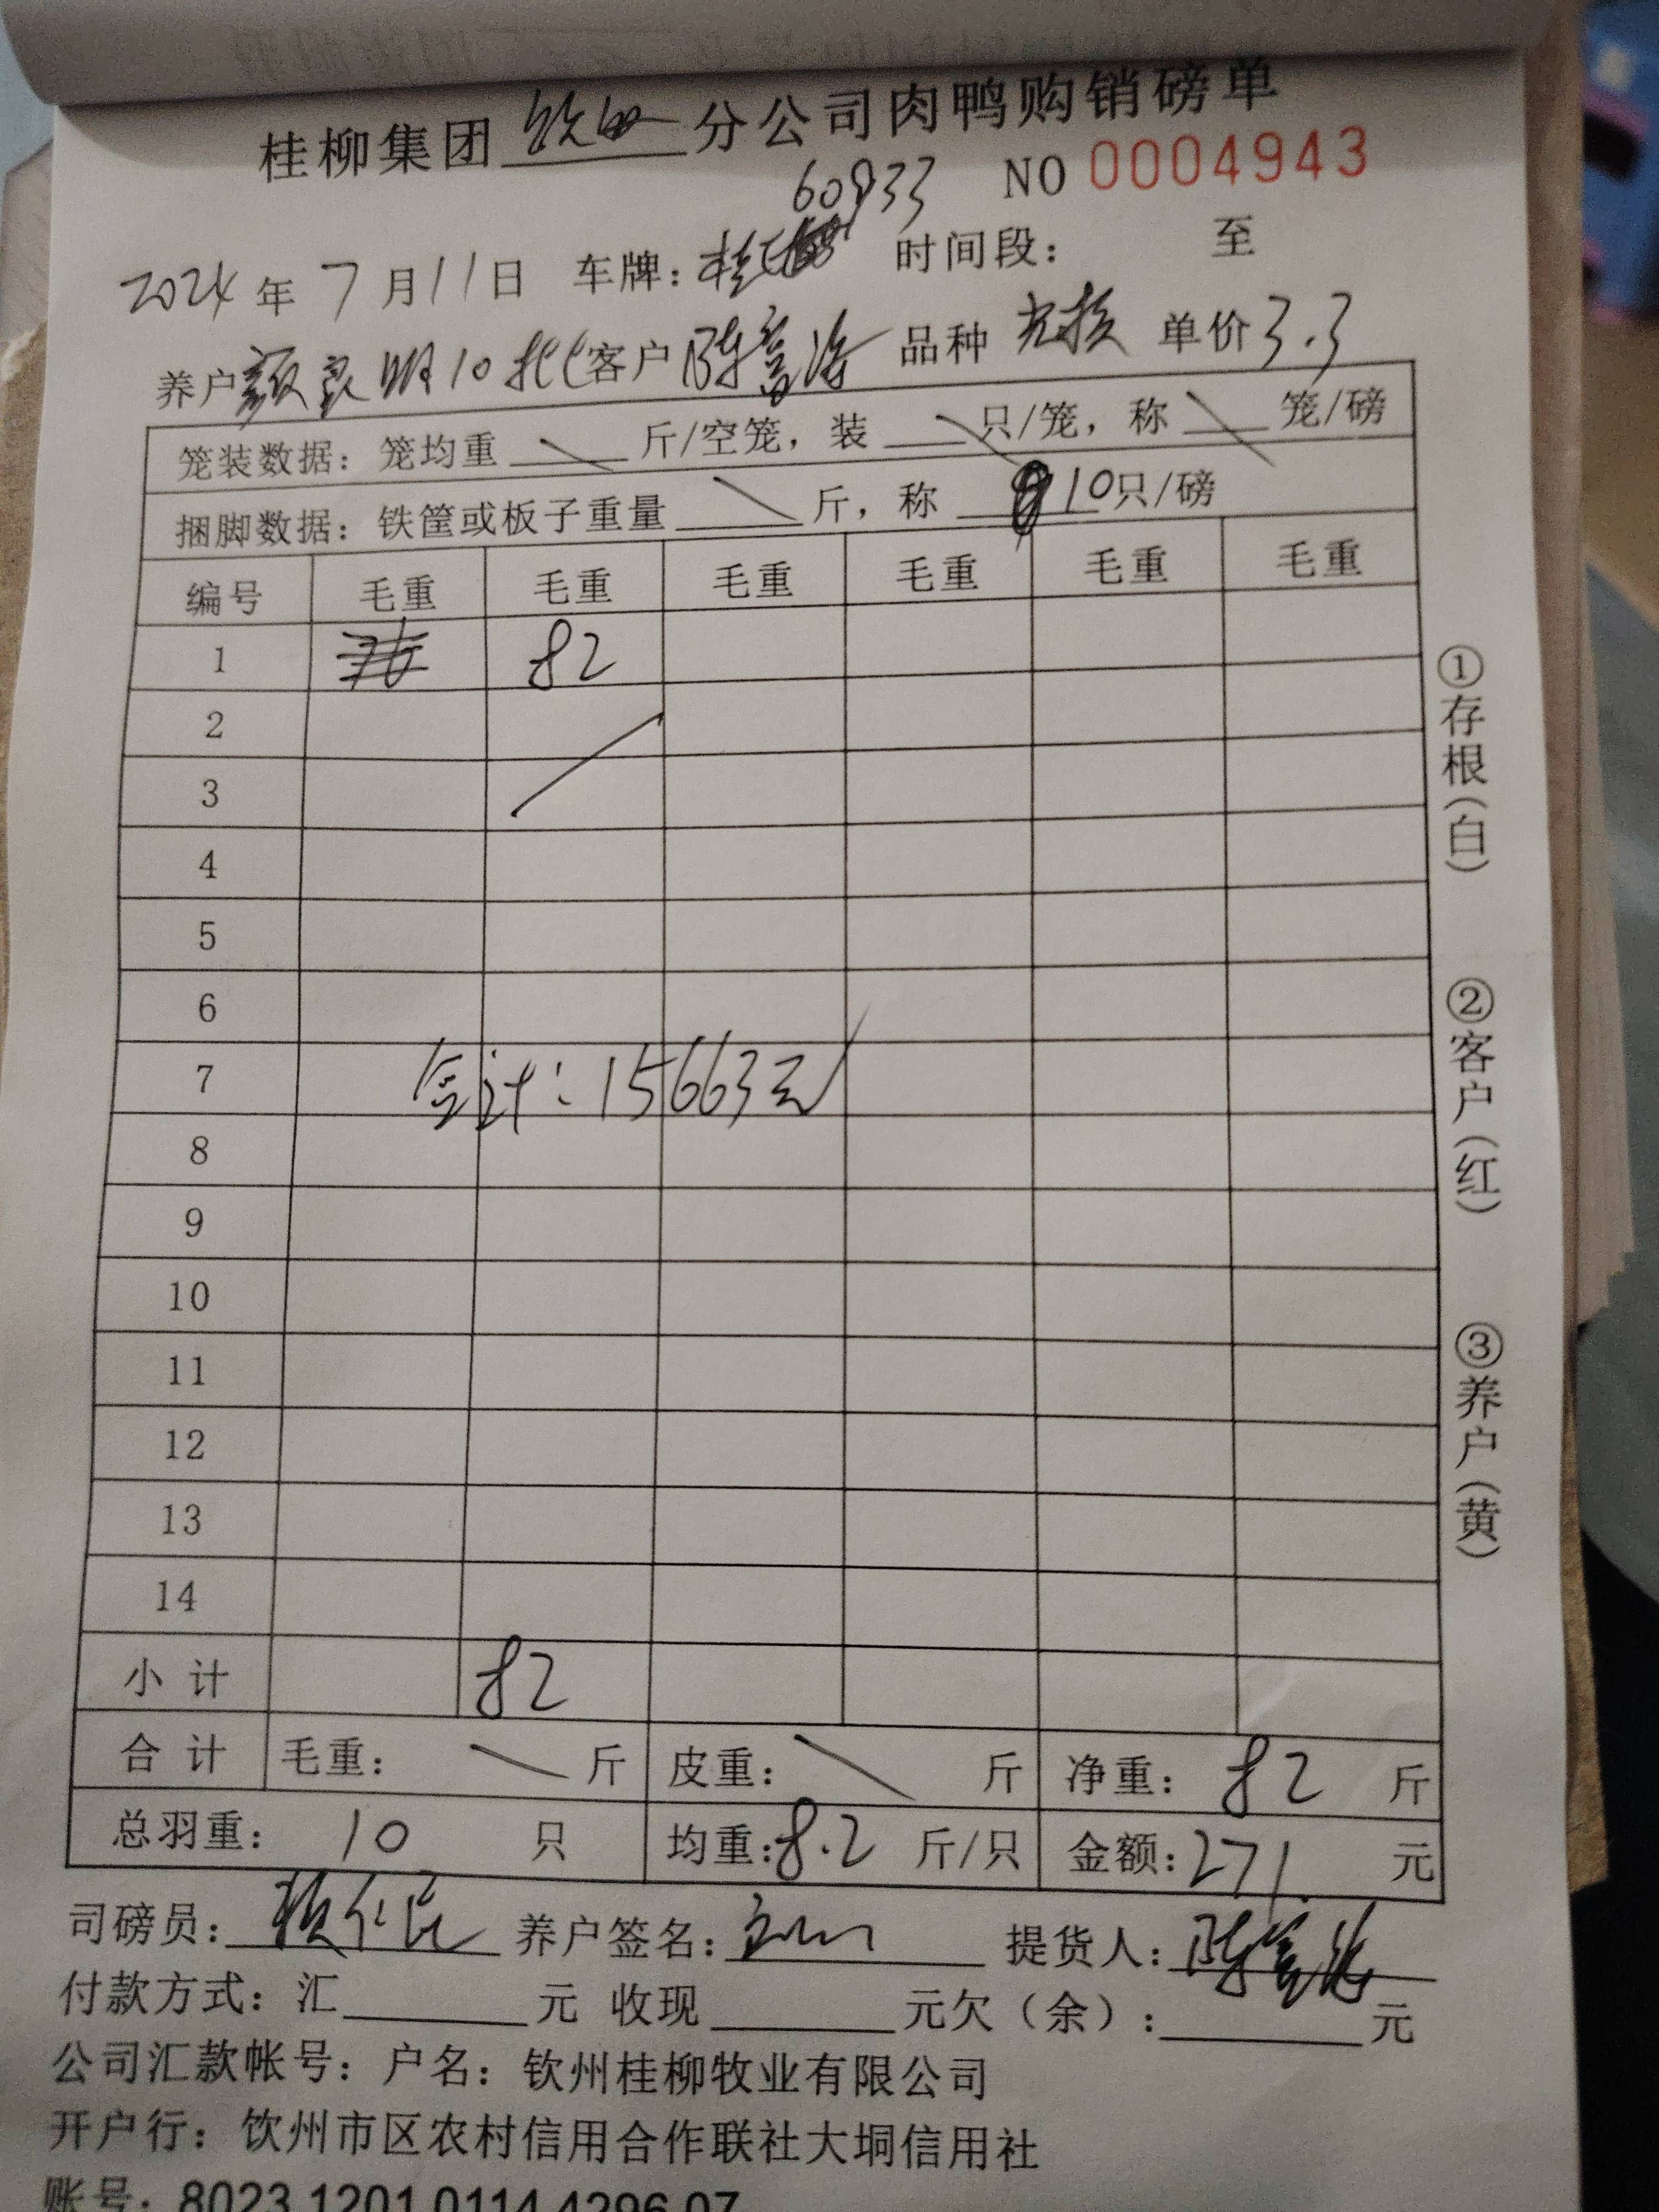 桂柳集团钦州分公司肉鸭购销磅单
60933 NO 0004943
2024年7月11日 车牌：桂 时间段： 至
养户颜家明10批客户陈富海 品种 单价3.3
笼装数据：笼均重 斤/空笼，装 只/笼，称 笼/磅
捆脚数据：铁筐或板子重量 斤，称 10只/磅
编号 毛重 毛重 毛重 毛重 毛重 毛重
1 82
2
3
4
5
6
7
合计：15663元
8
9
10
11
12
13
14
小计 82
合计 毛重： 斤 皮重： 斤 净重：82 斤
总羽重：10 只 均重：8.2 斤/只 金额：271. 元
司磅员： 养户签名： 提货人：陈富海
付款方式：汇 元 收现 元欠（余）： 元
公司汇款帐号：户名：钦州桂柳牧业有限公司
开户行：钦州市区农村信用合作联社大垌信用社
账号：8023 1201 0114 4296 07
①存根（白）
②客户（红）
③养户（黄）